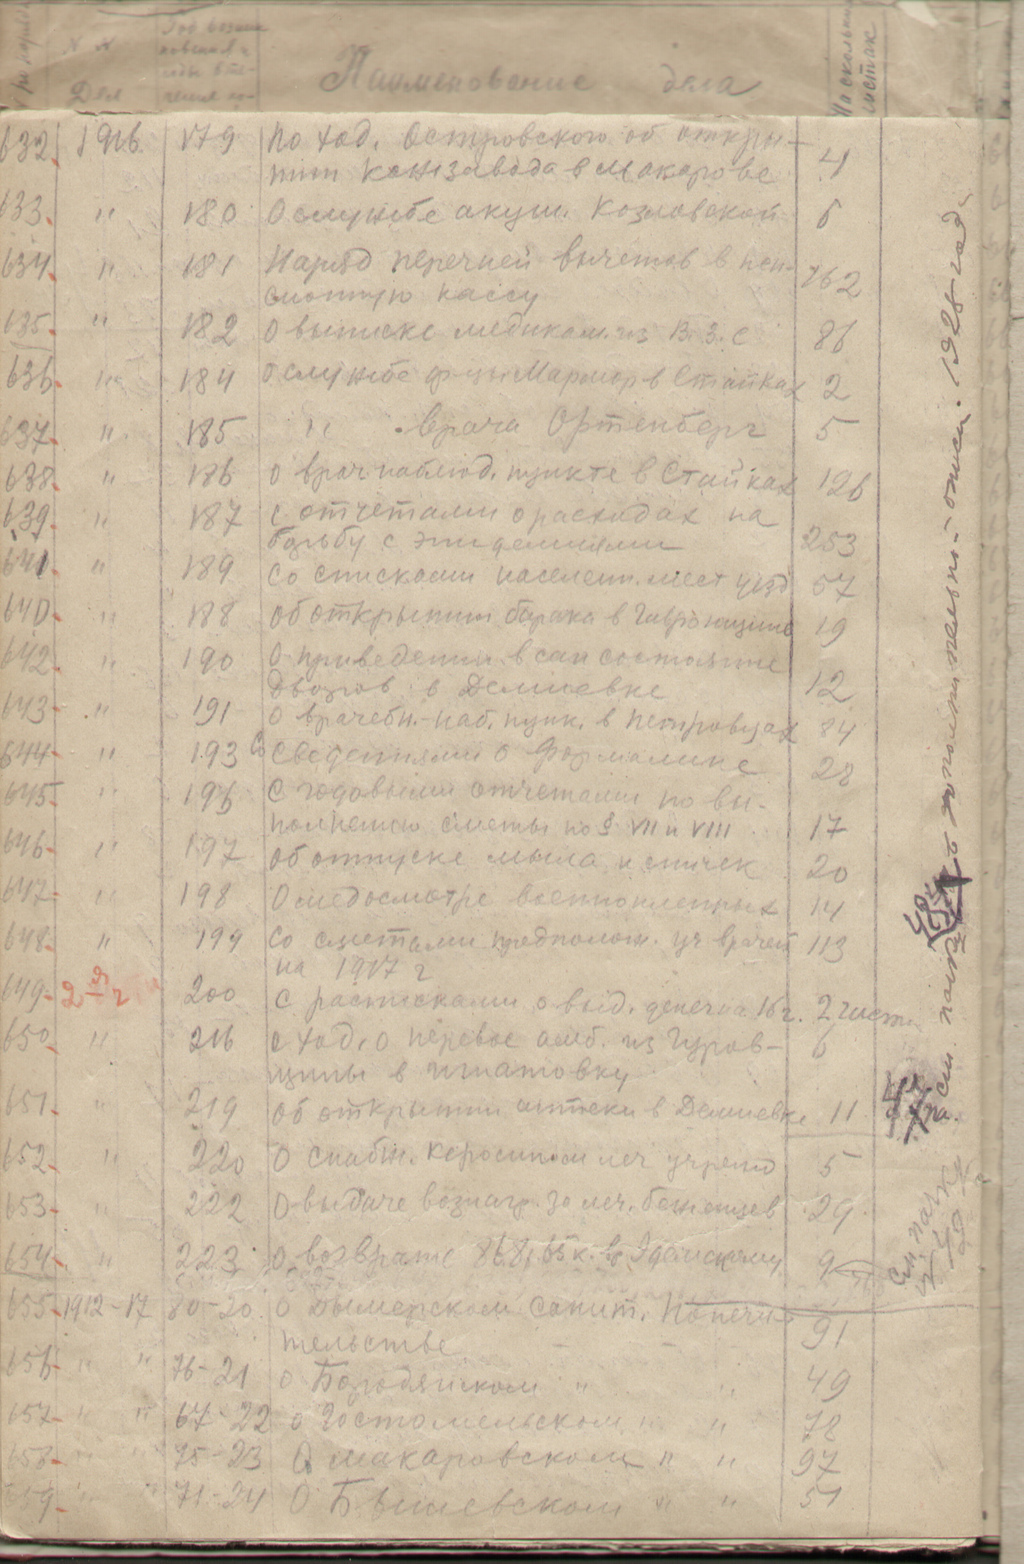 № № Дел
Наименование дела
На скольких листах
632. 1916 179 По ход. Островского об откры-
тии кожзавода в Макарове 4
633. " 180 О службе акуш. Козловской 6
634. " 181 Наряд перечней вычетов в пен-
сионную кассу 762
635. " 182 О выписке медиком. из В.З.С 86
636. " 184 О службе ф-цы Мармор в Стайках 2
637. " 185 " врача Ортенберг 5
638. " 186 О врач наблюд. пункте в Стайках 126
639. " 187 С отчетами о расходах на
борьбу с эпидемиями 253
641. " 189 Со списками населен. мест уезд 57
640. " 188 Об открытии барака в Гавронщине 19
642. " 190 О приведении в сан состояние
дворов в Демиевке 12
643. " 191 О врачебн.-наб. пунк. в Петровцах 84
644. " 193 Со сведениями о формалине 28
645. " 196 С годовыми отчетами по вы-
полнению сметы по § VII и VIII 17
646. " 197 Об отпуске мыла и спичек 20
647. " 198 О медосмотре военнопленных 14
648. " 199 Со сметами предполож. уч врачей
на 1917 г 113
649. 200 С расписками о выд. денег на 16 г. 2 части
650. " 216 С ход. о перевос амб. из Гуров-
щины в Игнатовку 6
651. " 219 Об открытии аптеки в Демиевке 11
652. " 220 О снабж. керосином леч учрежд 5
653. " 222 О выдаче вознагр. за леч. беженцев 29
654. " 223 О возврате 868,65 к. 9
655. 1912-17 80-20 О Дымерском санит. Попечи-
тельстве 91
656. " " 76-21 О Бородянском " " 49
657. " " 67-22 О Гостомельском " " 78
658. " " 75-23 О Макаровском " " 97
659. " " 71-24 О Бышевском " " 51
см. дополнительн. описи. 1928 год.
См папку